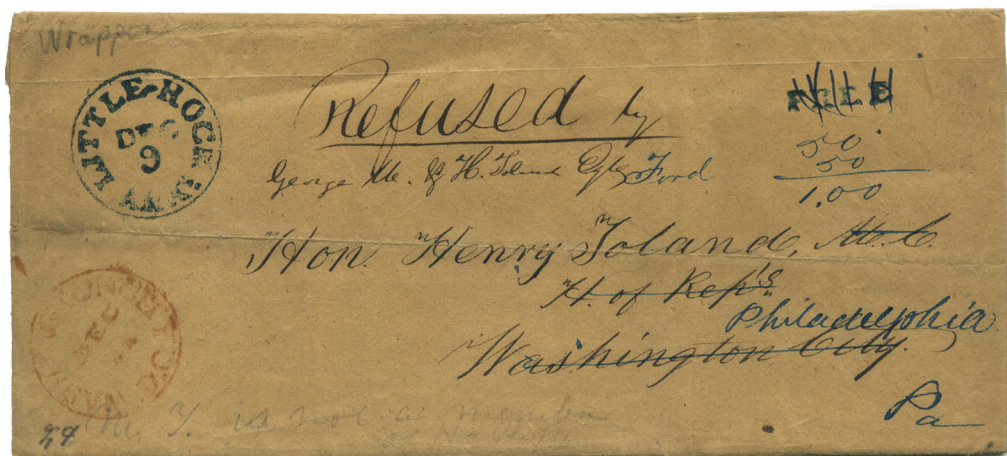 Wrapper
LITTLE-ROCK
DEC
9
FREE
Refused by
50
50
George M. H. Toland Ford
1.00
Hon. Henry Toland, M.C.
H. of Rep's
Philadelphia
Washington City.
DEC
Pa
Mr. T. is not a member
24